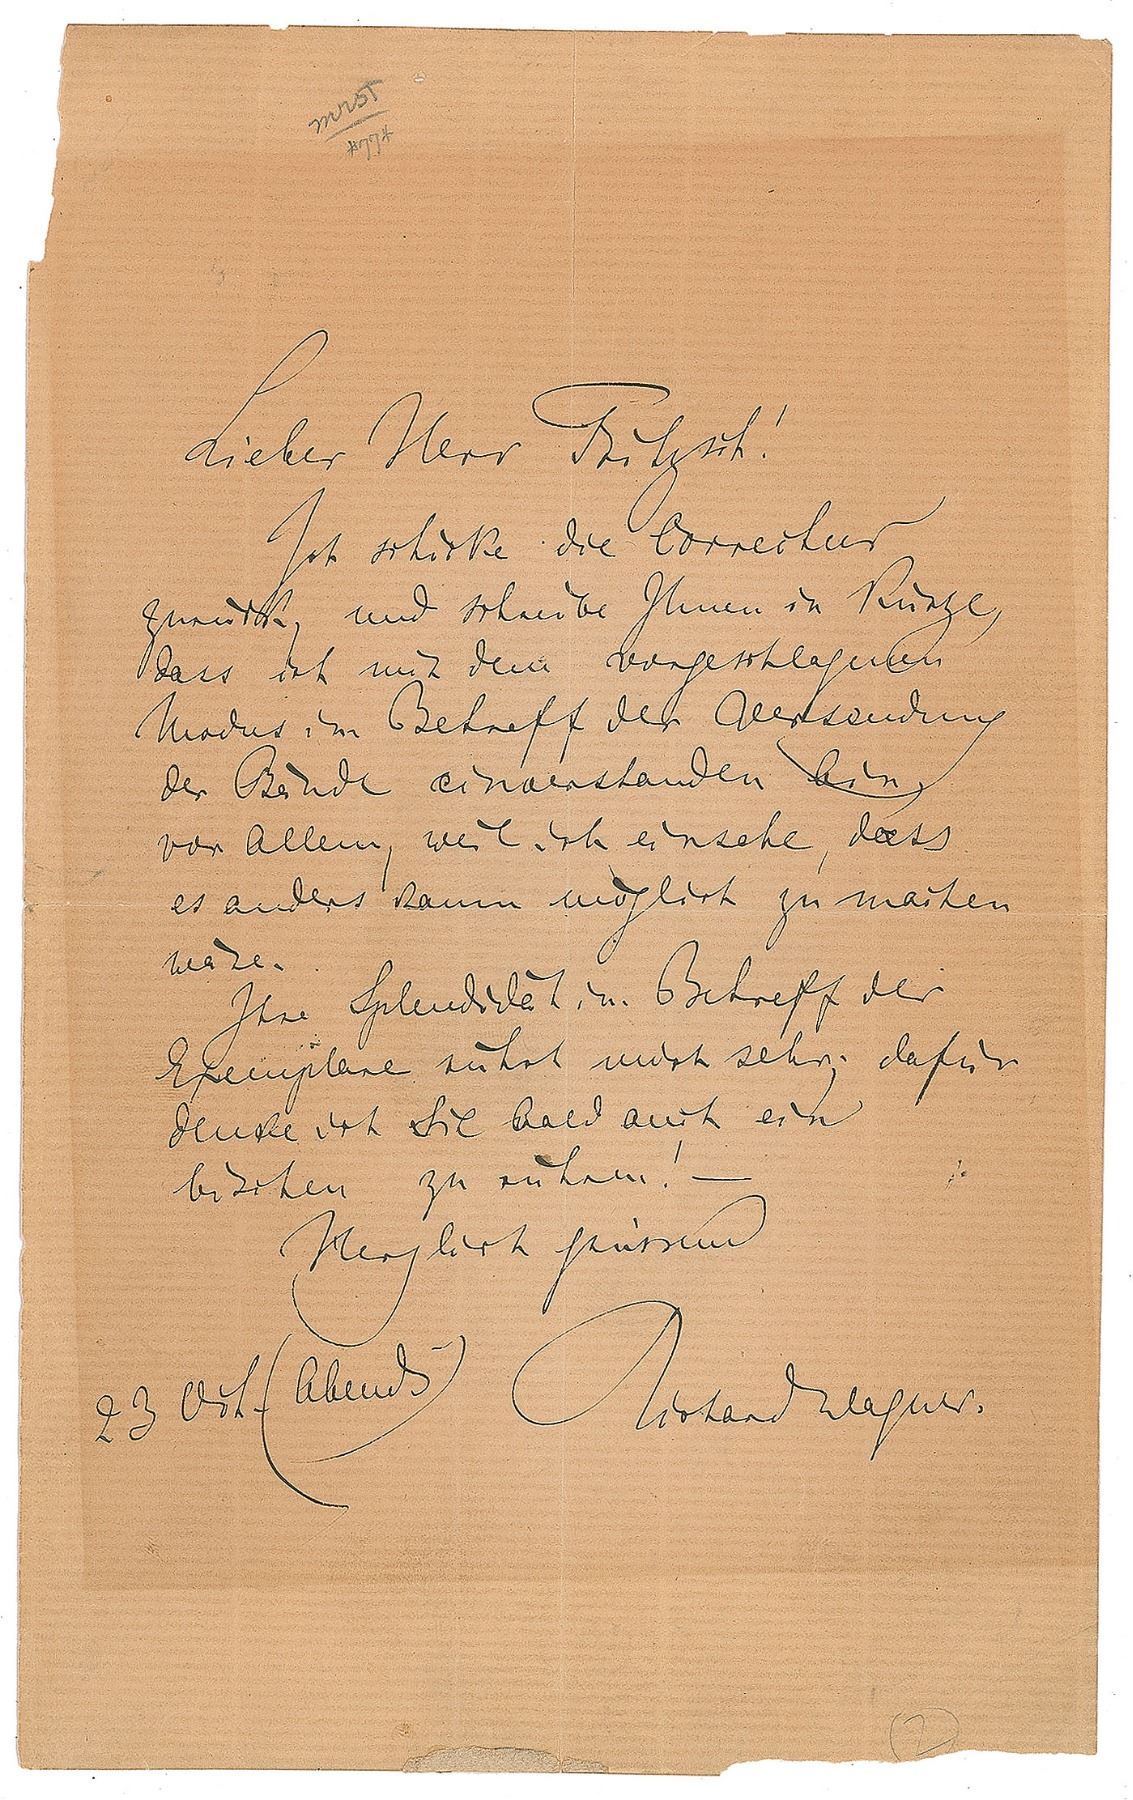 Lieber Herr Fritzsch!
Ich schicke die Correctur
zurück, und schreibe Ihnen in Kürze,
dass ich mit dem vorgeschlagnen
Modus im Betreff der Versendung
der Bände einverstanden bin,
vor Allem, weil ich einsehe, dass
es anders kaum möglich zu machen
wäre.
Ihre Splendidät im Betreff der
Exemplare rührt mich sehr; dafür
denke ich Sie bald auch ein
bischen zu rühren! —
Herzlich grüssend
Richard Wagner.
23 Oct. (Abends)
(2)